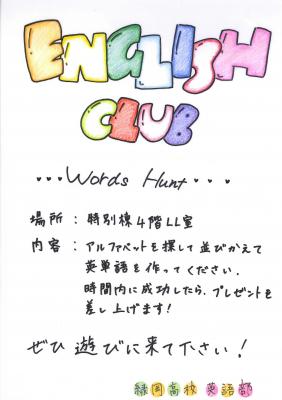 ENGLISH
CLUB
...Words Hunt....
場所：特別棟4階LL室
内容：アルファベットを探して並びかえて
英単語を作ってください.
時間内に成功したら、プレゼントを
差し上げます!
ぜひ遊びに来て下さい!
緑岡高校 英語部